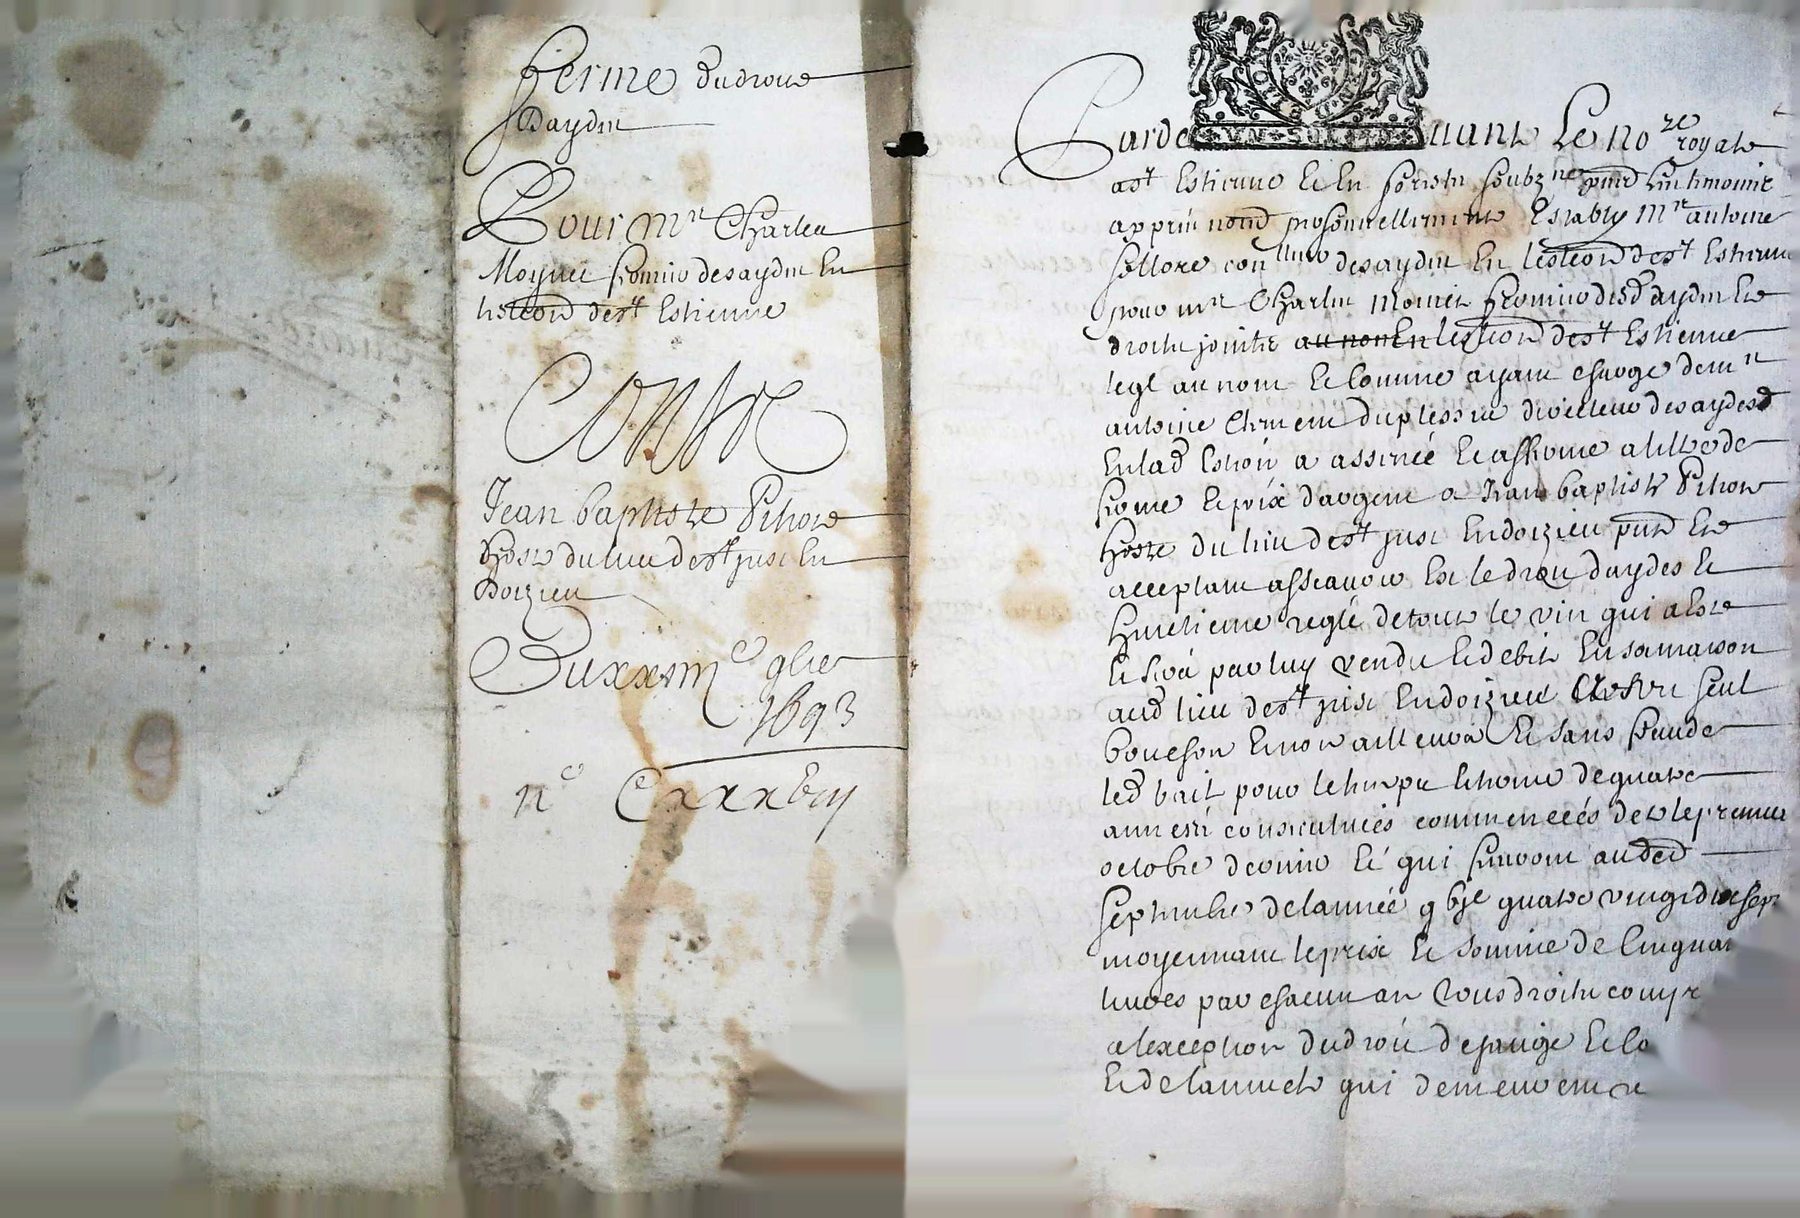 Ferme du droit
Daydes
Pour Mr Charles
Moynet fermier des aydes En
lestion de st Estienne
Contre
Jean baptiste Pitiore
Hoste du lieu de st just En
Doizieu
Du xxm e 9bre
1693
n e Cxxxbiij
UN SOL
Parde uant Le no re royal
a st Estienne Et En forestz soubz ne
personnellement Estably Mr antoine
des aydes En de st Estienne
pour mr Charles Moinet fermier desd aydes Et
droits joints au nom En lestion de st Estienne
Legl au nom Et Comme ayant charge de mr
antoine du plessis directeur des aydes
En lad Estion a assencé Et afferme a tiltre de
ferme Et prix dargent a Jean baptiste Pitiore
hoste du lieu de st just En doizieu pnt Et
acceptant assauoir Est le droit daydes Et
huictieme reglé de tout le vin qui a Este
Et sera par luy vendu Et debité En sa maison
aud lieu de st just En doizieu seul
bouchon Et non ailleurs Et sans fraude
led bail pour le temps Et terme de quatre
années consecutives commencées des le premier
octobre dernier Et qui finiront au der
septembre de lannée g bje quatre vingt dix sept
moyennant le prix Et somme de Cinquan
liures par chacun an tous droits compr
a lexception du droit de Et
Et de lannuel qui demeurent